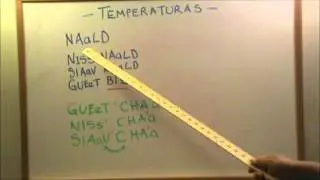 - TEMPERATURAS -
NAaLD
NISS NAaLD
SIAaV NAaLD
GUEeT
GUEeT CHAa
NISS CHAa
SIAaV CHAa